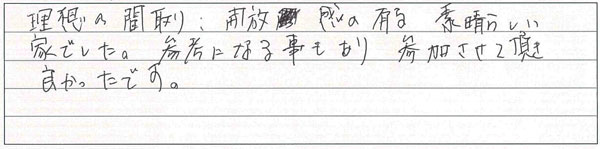 理想の間取り、開放感の有る 素晴らしい
家でした。参考になる事もあり 参加させて頂き
良かったです。